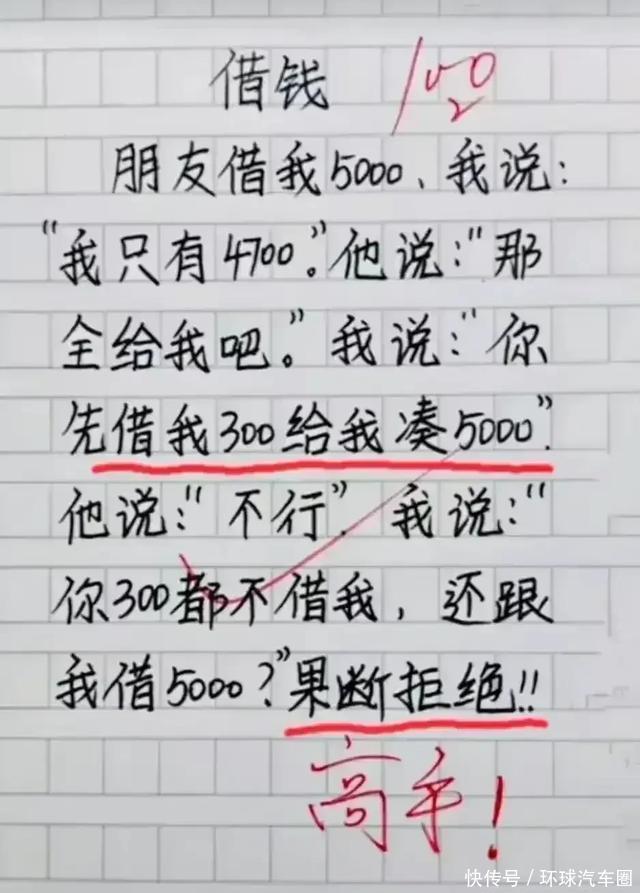 借钱
100
朋友借我5000、我说：
“我只有4700。”他说：“那
全给我吧。”我说：“你
先借我300给我凑5000”.
他说：“不行”. 我说：“
你300都不借我，还跟
我借5000？”果断拒绝!!
高手！
快传号／环球汽车圈